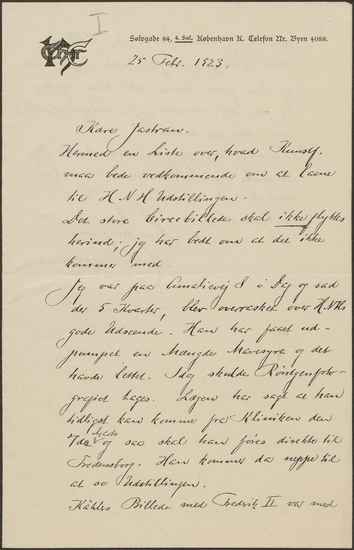 I
Sølvgade 84, 4. Sal. København K. Telefon Nr. Byen 4088.
25 Febr. 1923.
Kære Jastrau.
Hermed en Liste over, hvad Kunstf.
maa bede vedkommende om at laane
til H N H Udstillingen.
Det store Circebillede skal ikke flyttes
herind; jeg har bedt om at det ikke
kommer med.
Jeg var paa Amalievej 8 i Dag og sad
der 5 Kvarter, blev overrasket over H.N.Hs
gode Udseende. Han har faaet ud-
pumpet en Mængde Mavesyre og det
havde lettet. I dag skulde Röntgenfoto-
grafiet tages. Lægen har sagt at han
tidligst kan komme fra Kliniken den
og saa skal han føres direkte til
Fredensborg. Han kommer da neppe til
at se Udstillingen.
Kählers Billede med Fredrik II var med